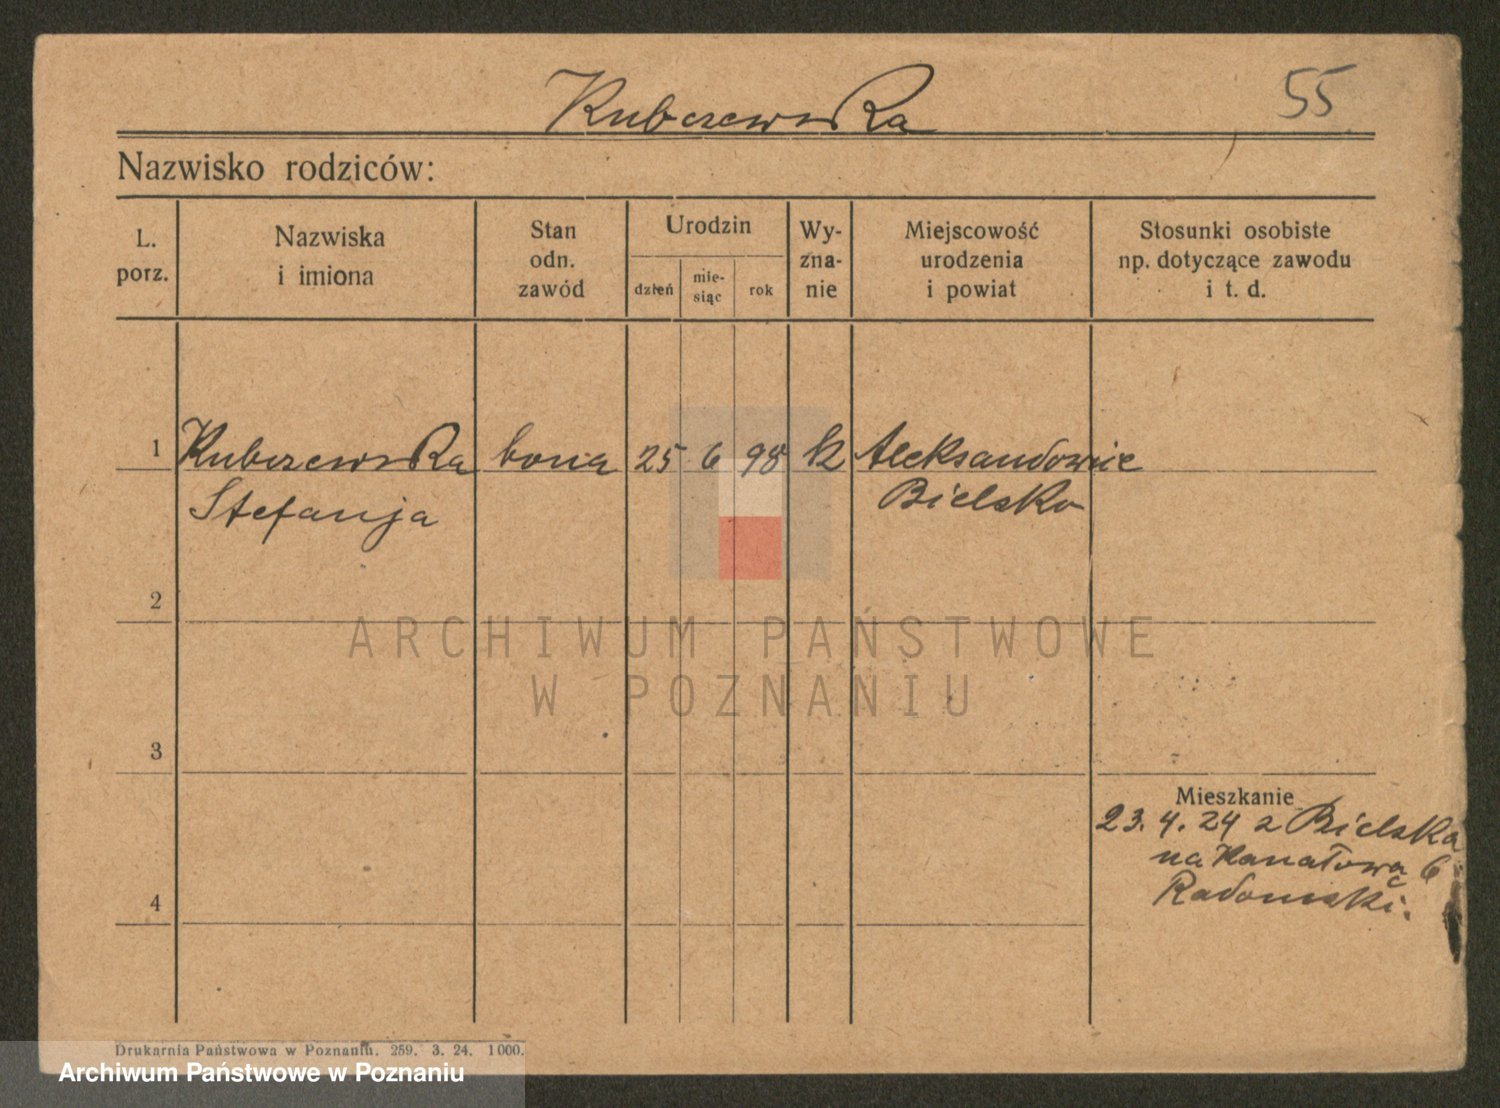 Kubczewska
55
Nazwisko rodziców:
L. porz.
Nazwiska i imiona
Stan odn. zawód
Urodzin
dzień
mie- siąc
rok
Wy- zna- nie
Miejscowość urodzenia i powiat
Stosunki osobiste np. dotyczące zawodu i t. d.
1 Kubczewska bona 25 6 98 k Aleksandowice
Stefanja Bielsko
2
ARCHIWUM PAŃSTWOWE
W POZNANIU
3
Mieszkanie
23. 4. 24 z Bielska
na Kanałową 6
4
Radomski.
Drukarnia Państwowa w Poznaniu. 259. 3. 24. 1000.
Archiwum Państwowe w Poznaniu